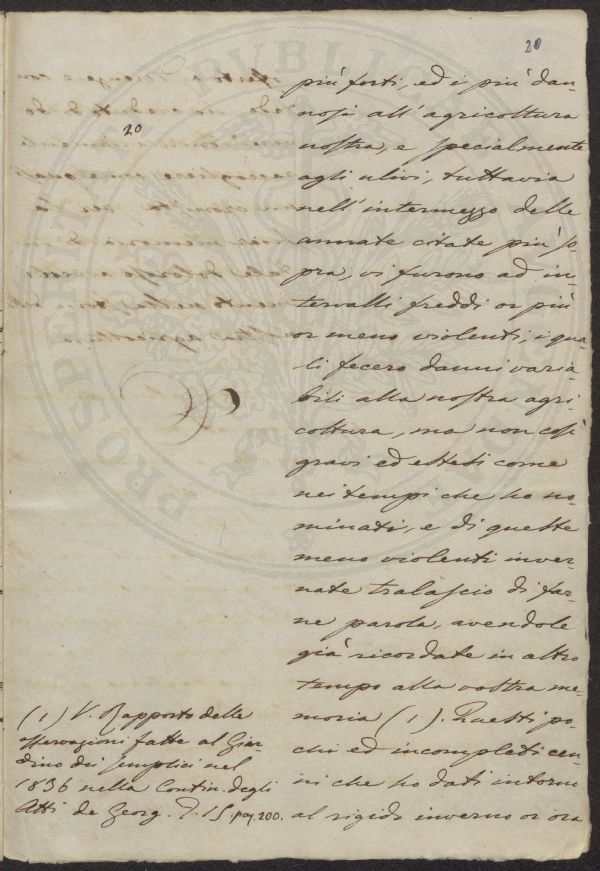 20
20
più forti, ed i più dan-
nosi all'agricoltura
nostra, e specialmente
agli ulivi, tuttavia
nell'intermezzo delle
annate citate più so-
pra, vi furono ad in-
tervalli freddi or più
or meno violenti, i qua-
li fecero danni varia-
bili alla nostra agri-
coltura, ma non così
gravi ed estesi come
nei tempi che ho no-
minati, e di queste
meno violenti inver-
nate tralascio di far-
ne parola, avendole
già ricordate in altro
tempo alla vostra me-
moria (1). Questi po-
chi ed incompleti cen-
ni che ho dati intorno
al rigido inverno or ora
(1) V. Rapporto delle
osservazioni fatte al Giar-
dino dei Semplici nel
1836 nella Contin. degli
Atti de Georg. T. 15. pag. 200.
PROSPERITATI PUBLICAE